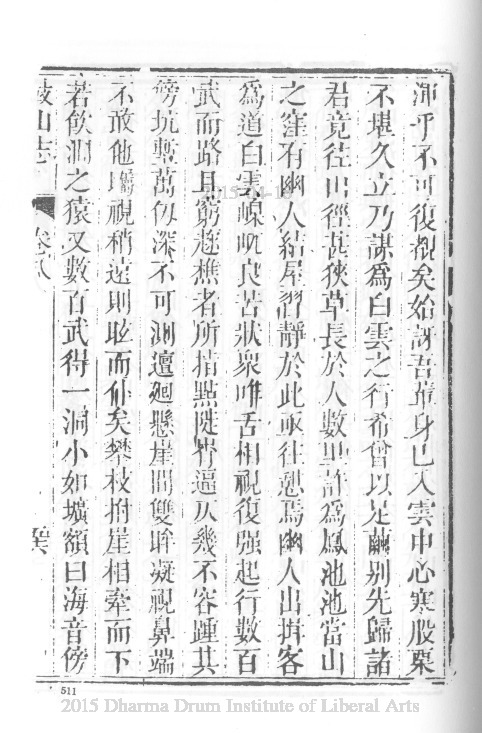 渾乎不可復覩矣始訝吾輩身已入雲中心寒股栗
不堪久立乃謀為白雲之行希曾以足繭别先歸諸
君竟往山徑甚狹草長於人數里許為鳳池池當山
之窪有幽人結屋習靜於此亟往憩焉幽人出揖客
為道白雲嶮巇良苦狀衆咋舌相視復强起行數百
武而路且窮遵樵者所指點陡崿逼仄幾不容踵其
傍坑塹萬仞深不可測邅廻懸崖間雙眸凝視鼻端
不敢他矚視稍遠則眩而仆矣攀枝拊崖相牽而下
若飲澗之猿又數百武得一洞小如壙額曰海音傍
鼓山志 卷八
511
2015 Dharma Drum Institute of Liberal Arts